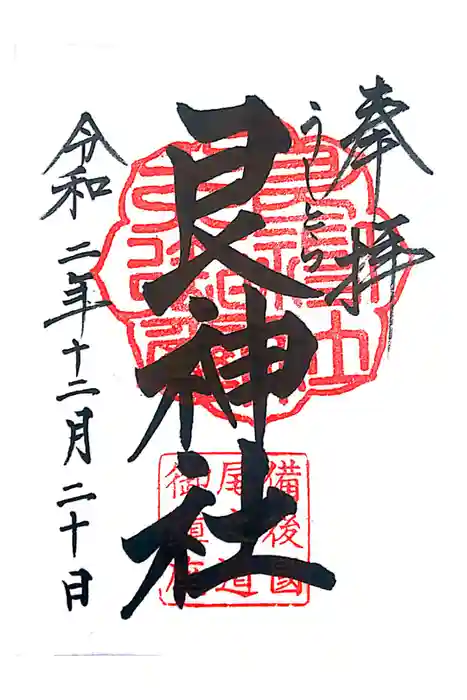 奉拝
うしとら
艮神社
令和二年十二月二十日
備後國
尾道
御鎮座